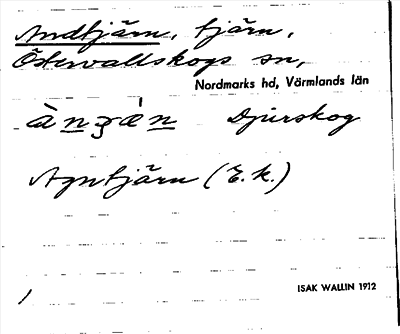 Andtjärn, tjärn,
Östervallskogs sn,
Nordmarks hd, Värmlands län
Djurskog
Agntjärn (E.K.)
ISAK WALLIN 1912